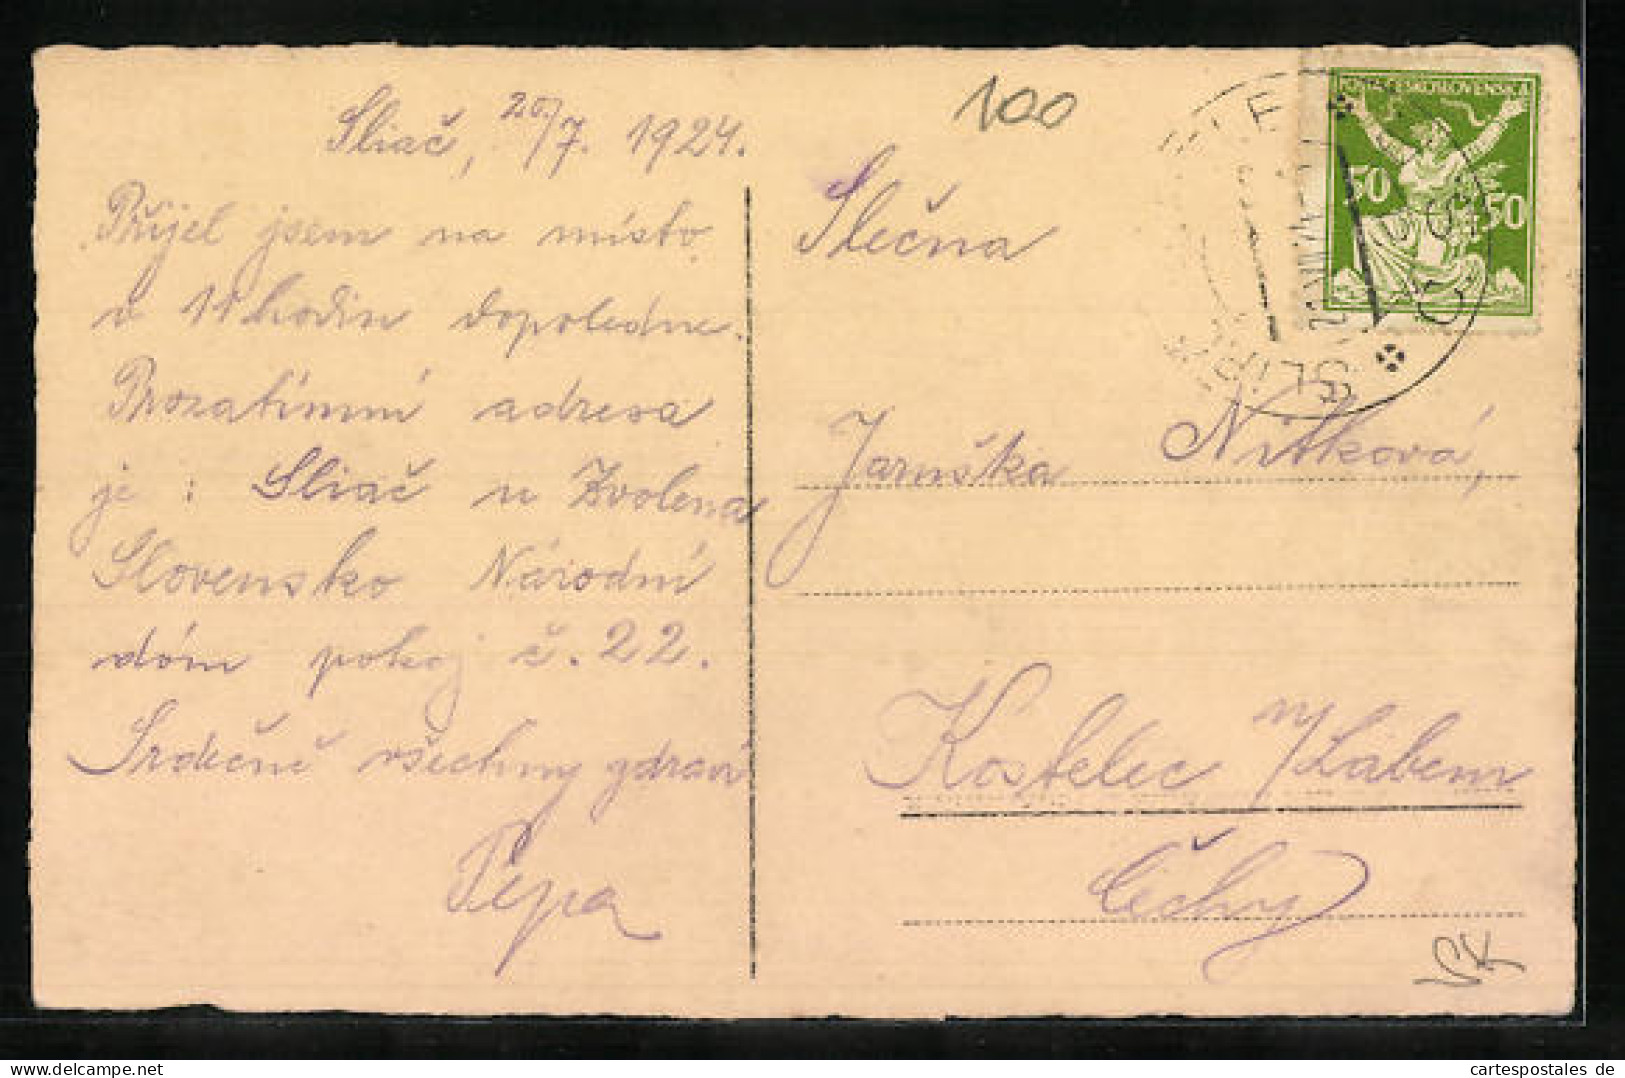 Sliač, 20/7. 1924.
Přijel jsem na místo
v 11 hodin dopoledne.
Prozatímní adresa
je : Sliač u Zvolena
Slovensko Národní
dóm pokoj č. 22.
Srdečně všechny zdraví
Pepa
100
Slečna
Jaruška Nitková,
Kostelec n/Labem
Čechy
POŠTA ČESKOSLOVENSKÁ
50 50
SLIAČ
ČSR
VSK
www.cartespostales.de